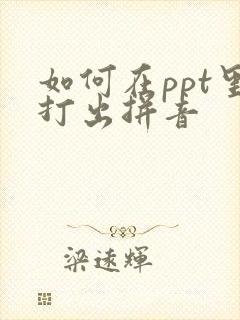 如何在ppt里
打出拼音
梁远辉